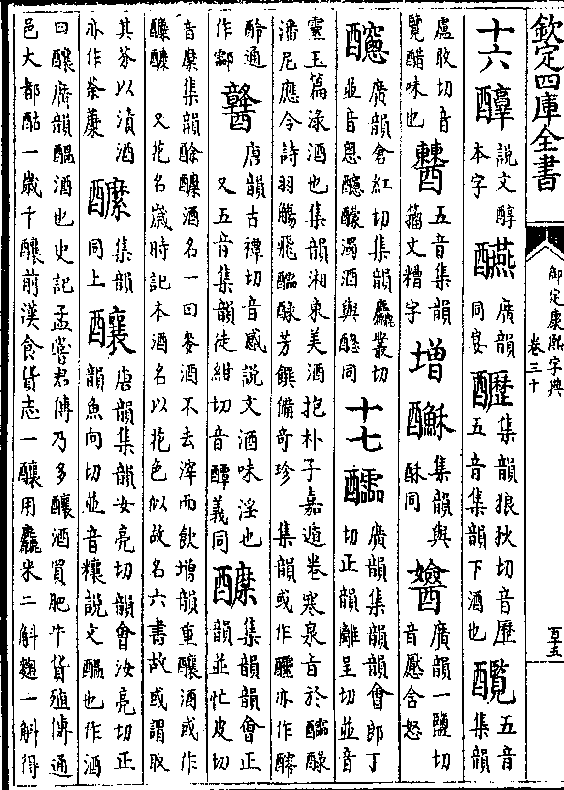 欽定四庫全書
御定康熙字典
卷三十
十六醰說文醇本字醼廣韻同宴𨣷集韻狼狄切音歷五音集韻下酒也䤘五音集韻
盧敢切音覽醋味也𨣽五音集韻籀文糟字增𨣥集韻與酥同𨣻廣韻一鹽切音懕含怒
𨣴廣韻倉紅切集韻麤叢切並音悤醯醿濁酒與醲同十七醽廣韻集韻韻會郎丁切正韻離呈切並音
靈玉篇淥酒也集韻湘東美酒抱朴子嘉遁卷寒泉旨於醽醁潘尼應令詩羽觴飛醽醁芳饌備奇珍 集韻或作醹亦作醪
酃通作酃𨣱唐韻古禫切音感說文酒味淫也又五音集韻徒紺切音醰義同醾集韻韻會正韻並忙皮切
音縻集韻酴醾酒名一曰麥酒不去滓而飲增韻重釀酒或作醿𨣾 又花名歲時記本酒名以花色似故名六書故或謂取
其芬以漬酒亦作荼蘼醿集韻同上釀唐韻集韻女亮切韻會汝亮切正韻魚向切並音糵說文醞也作酒
曰釀廣韻醞酒也史記孟嘗君傳乃多釀酒買肥牛貨殖傳通
邑大都酤一歲千釀前漢食貨志一釀用麤米二斛麴一斛得